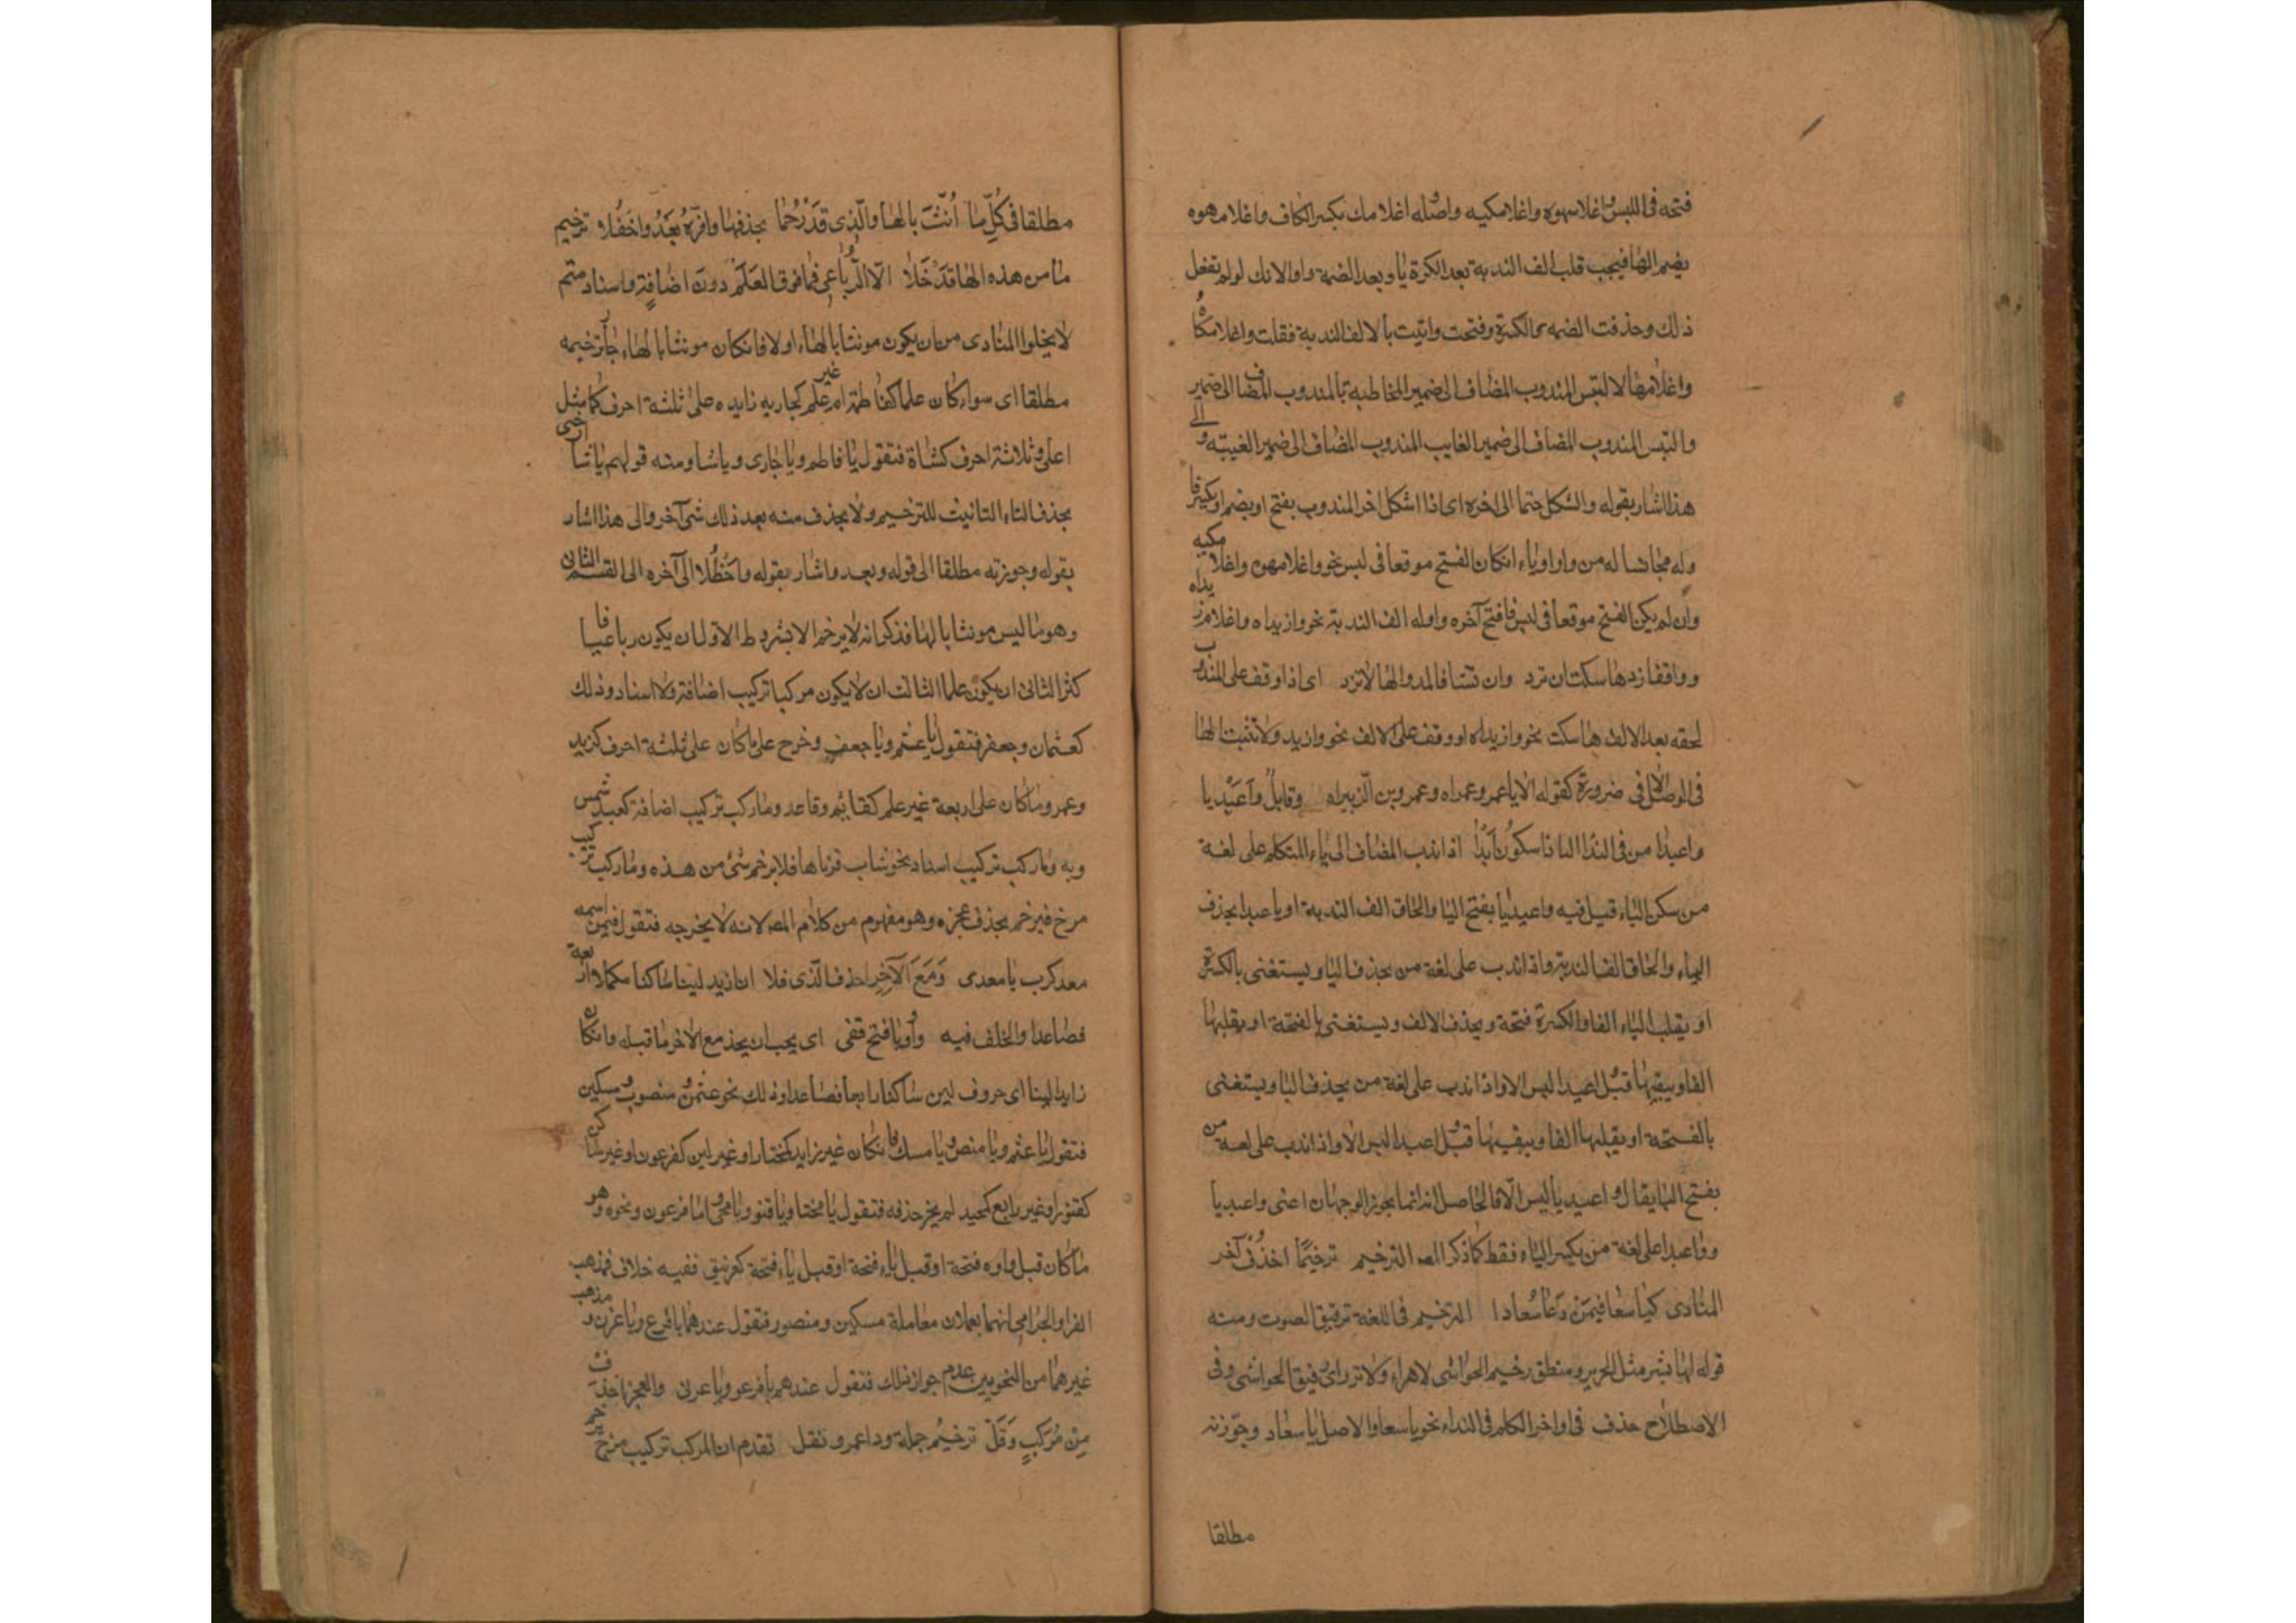 فتحه فى اللبس واغلامهوه واغلامكيه واصله اغلامك بكسر الكاف واغلامهوه
بضم الها فيجب قلب الف الندبة بعد الكسرة يا وبعد الضمة واوا لانك لو لم تفعل
ذلك وحذفت الضمه والكسرة وفتحت واتيت بالالف الندبة فقلت واغلامكاه
واغلامها لالتبس المندوب المضاف الى ضمير المخاطبة بالمندوب المضاف الى ضمير
والتبس المندوب المضاف الى ضمير الغايب المندوب المضاف الى ضمير الغيبته والى
هذا اشار بقوله والشكل حتما الى اخره اى اذا اشكل اخر المندوب بفتح او بضم او بكسر فا
وله مجانسا له من واو او ياء انكان الفتح موقعا فى لبس نحو واغلامهوه واغلامكيه
وان لم يكن الفتح موقعا فى لبس فافتح آخره واوله الف الندبة نحو وازيداه واغلام زيداه
وواقفا زد ها سكت ان ترد وان تشا فالمد والها لا تزد اى اذا وقف على المندوب
لحقه بعد الالف ها سكت نحو وازيداه او وقف على الالف نحو وازيدا ولا تثبت الها
فى الوصل الا فى ضرورة كقوله الا يا عمرو عمراه وعمرو بن الزبيراه وقابل واعبديا
واعبدا من فى الندا اليا ذا سكون ابدا اذا ندب المضاف الى ياء المتكلم على لغة
من سكن الياء قيل فيه واعبديا بفتح اليا والحاق الف الندبة او يا عبدا بحذف
الياء والحاق الف الندبة واذا ندب على لغة من يحذف اليا ويستغنى بالكسرة
او يقلب الياء الفا والكسرة فتحة ويحذف الالف ويستغنى بالفتحة او يقلبها
الفا ويبقيها قيل اعبدا ليس الا واذا ندب على لغة من يحذف اليا ويستغنى
بالفتحة او يقلبها الفا ويبقيها قيل اعبدا ليس الا واذا ندب على لغة من
بفتح اليا يقال واعبديا ليس الا فالحاصل انه انما يجوز الوجهان اعنى واعبديا
وواعبدا على لغة من يكسر الياء فقط كما ذكر المص الترخيم ترخيما احذف آخر
المنادى كيا سعا فيمن دعا سعادا الترخيم فى اللغة ترقيق الصوت ومنه
قوله لها بشر مثل الحرير ومنطق رخيم الحواشى لاهراء ولا نزر اى رقيق الحواشى وفى
الاصطلاح حذف فى اواخر الكلم فى النداء نحو يا سعا والاصل يا سعاد وجوزنه
مطلقا
مطلقا فى كل ما انث بالها والذى قد رخما بحذفها وفره بعد واحظلا ترخيم
ما من هذه الها قد خلا الا الرباعى فما فوق العلم دون اضافة واسناد متم
لا يخلوا المنادى من ان يكون مونثا بالهاء او لا فانكان مونثا بالهاء جاز ترخيمه
مطلقا اى سواء كان علما كفاطمة ام غير علم كجاريه زايده على ثلثة احرف كما مثل
اعلى ثلاثة احرف كشاة فتقول يا فاطم ويا جارى ويا شا ومنه قولهم يا شا ارجنى
بحذف التاء التانيث للترخيم ولا يحذف منه بعد ذلك شى آخر والى هذا اشار
بقوله وجوزته مطلقا الى قوله وبعد واشار بقوله واحظلا الى آخره الى القسم الثانى
وهو ما ليس مونثا بالها فذكر انه لا يرخم الا بشروط الاول ان يكون رباعيا فا
كثر الثانى ان يكون علما الثالث ان لا يكون مركبا تركيب اضافة ولا اسناد وذلك
كعثمان وجعفر فتقول يا عثم ويا جعف وخرج على ما كان على ثلثة احرف كزيد
وعمرو وما كان على اربعة غير علم كقائم وقاعد وما ركب تركيب اضافة كعبد شمس
وبه وما ركب تركيب اسناد نحو شاب قرناها فلا يرخم شئ من هذه وما ركب تركيب
مزج فيرخم بحذف عجزه وهو مفهوم من كلام المص لانه لا يخرجه فتقول فيمن اسمه
معدكرب يا معدى ومع الآخر احذف الذى فلا ان زيد لينا ساكنا مكملا اربعة
فصاعدا والخلف فيه واو ويا فتح قفى اى يجب ان يحذ مع الآخر ما قبله وانكان
زايدا لينا اى حروف لين ساكنا رابعا فصاعدا وذلك نحو عثمن ومنصور ومسكين
فتقول يا عثم ويا منص ويا مسك فانكان غير زايد كمختار او غير لين كفرعون او غير ساكن
كقنور او غير رابع كمجيد لم يجز حذفه فتقول يا مختا ويا قنو ويا مجى واما فرعون ونحوه وهو
ما كان قبل واوه فتحة او قبل ياء فتحة او قبل ياء فتحة كغرنيق ففيه خلاف فمذهب
الفرا والجرامى انهما يعملان معاملة مسكين ومنصور فتقول عندهما يا فرع ويا غرن ومذهب
غيرهما من النحويين عدم جواز ذلك فتقول عندهم يا فرعو ويا غرنى والعجز احذف
من مركب وقل ترخيم جملة وذا عمرو نقل تقدم ان المركب تركيب مزج يرخم